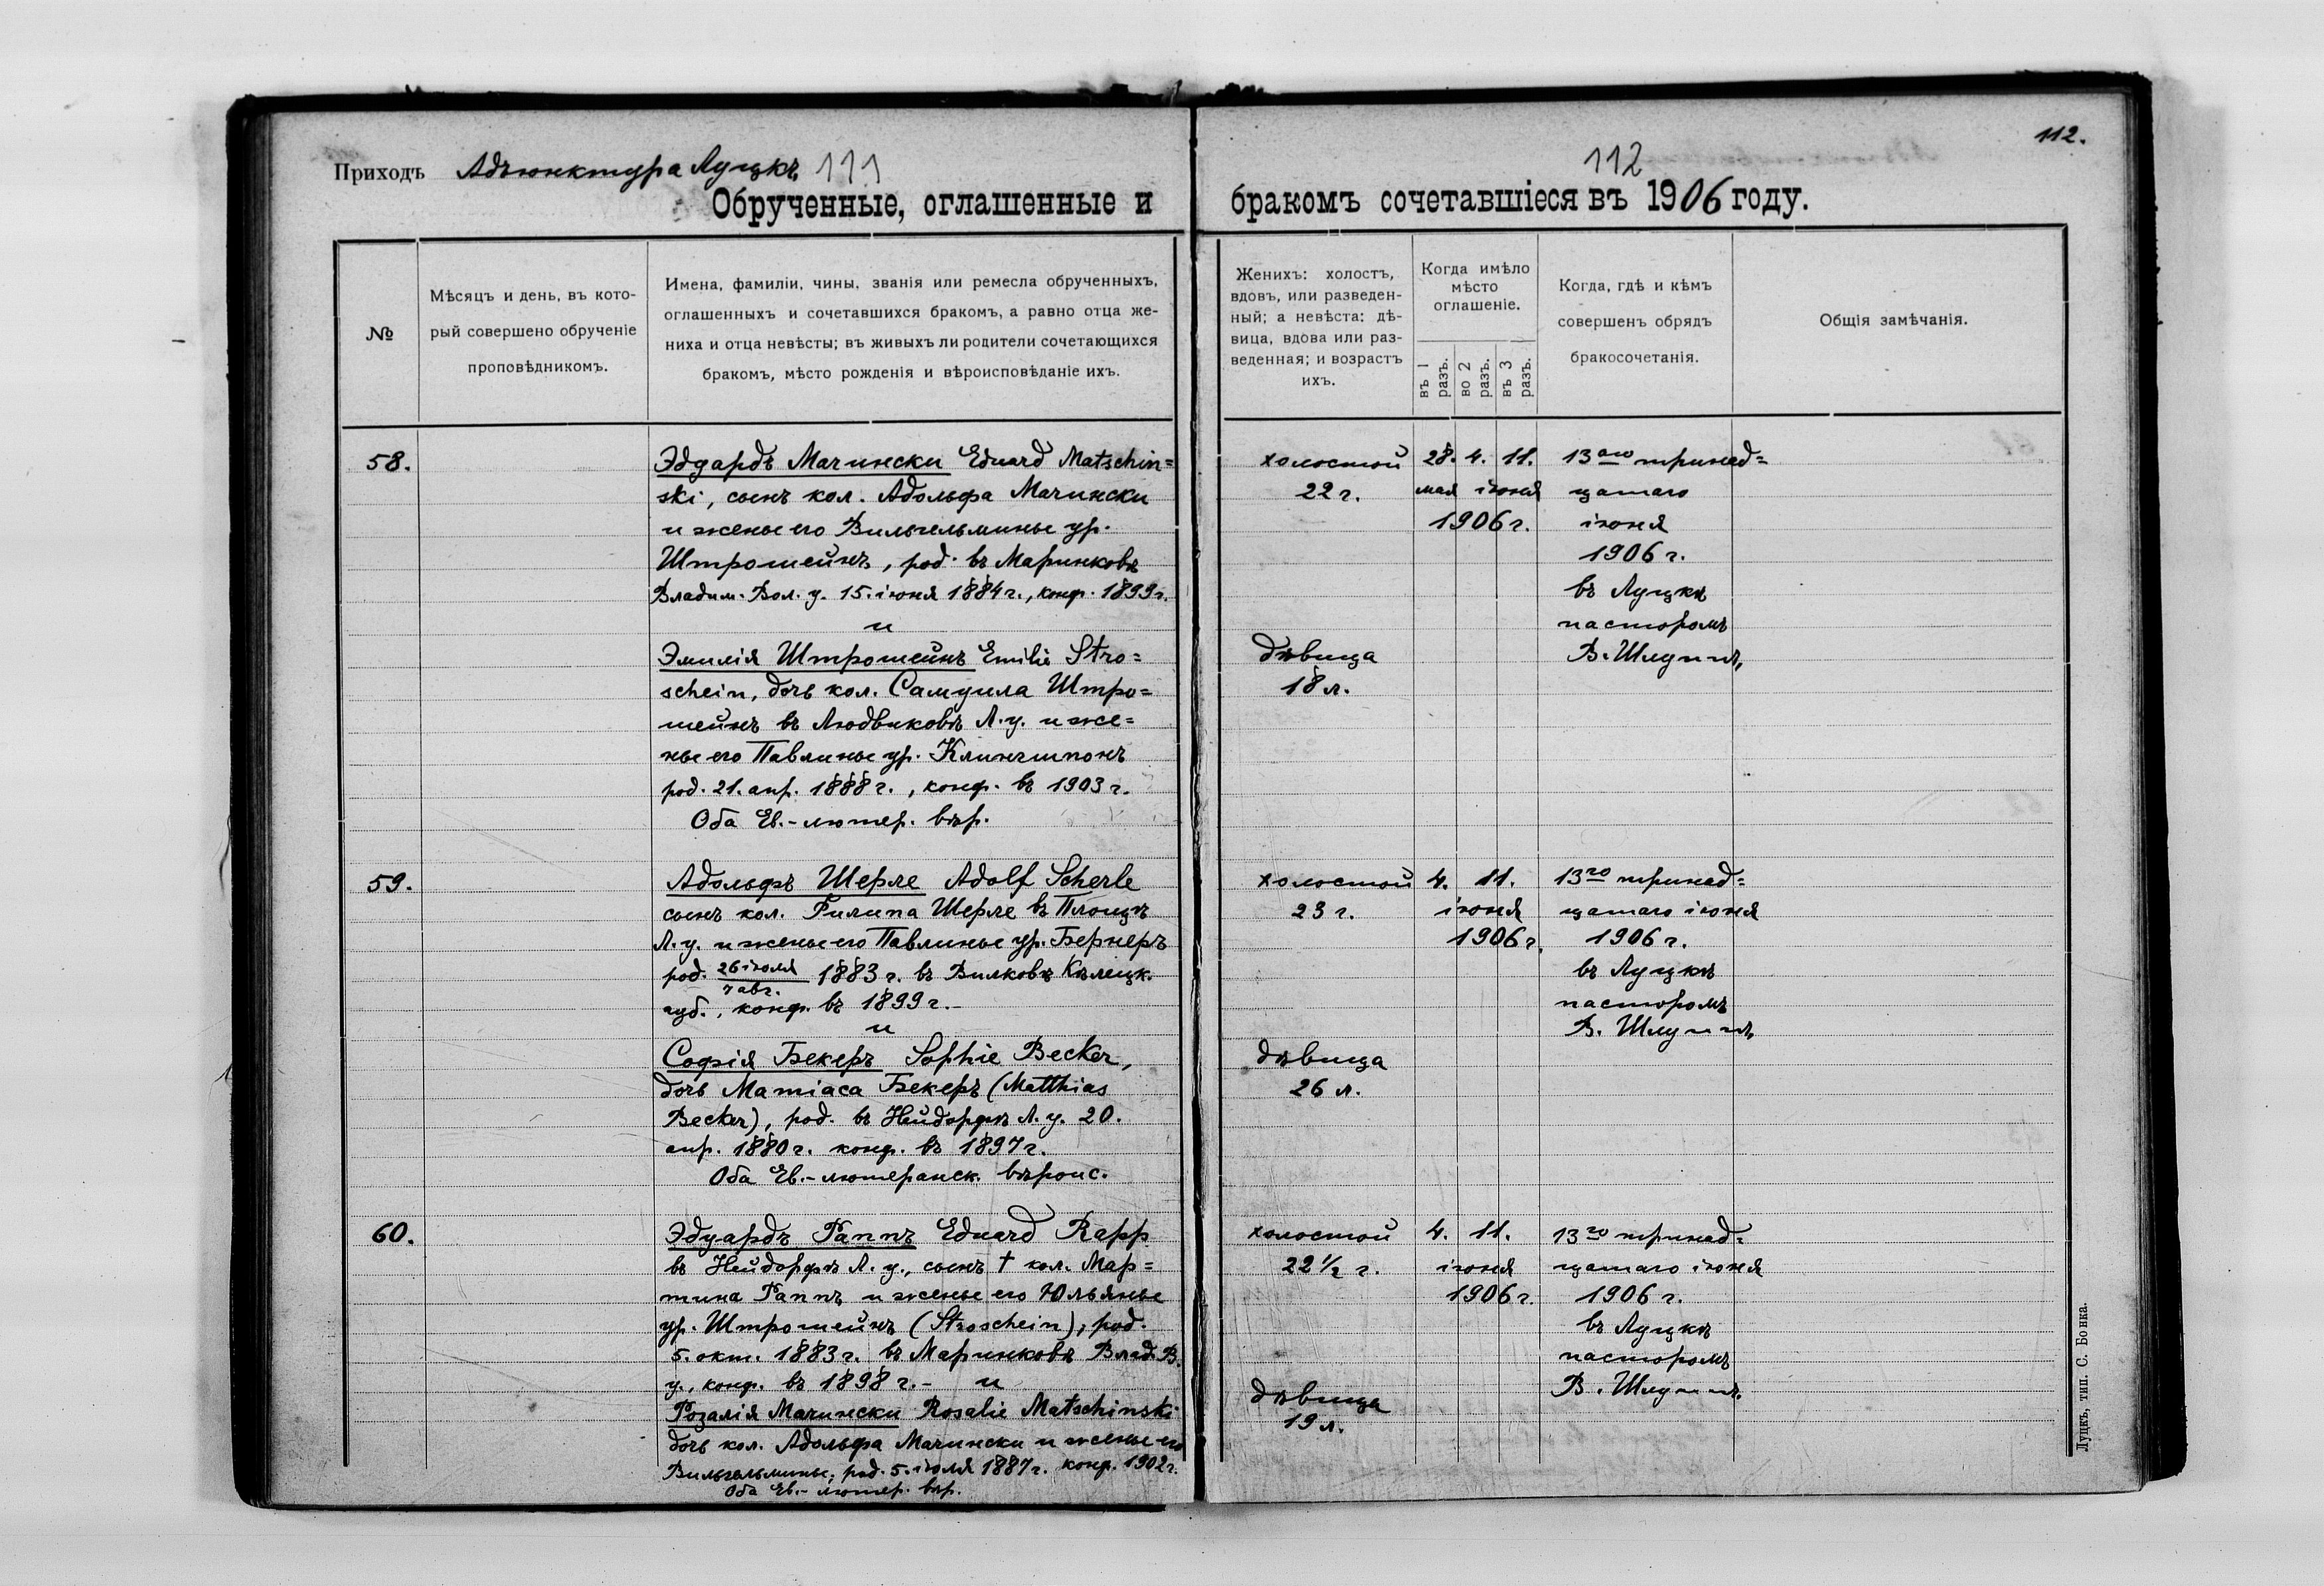 112.
Приходъ Адъюнктура Луцкъ 111
112
Обрученные, оглашенные и бракомъ сочетавшіеся въ 1906 году.
№
Мѣсяцъ и день, въ кото-
рый совершено обрученіе
проповѣдникомъ.
Имена, фамиліи, чины, званія или ремесла обрученныхъ,
оглашенныхъ и сочетавшихся бракомъ, а равно отца же-
ниха и отца невѣсты; въ живыхъ ли родители сочетающихся
бракомъ, мѣсто рожденія и вѣроисповѣданіе ихъ.
Женихъ: холостъ,
вдовъ, или разведен-
ный; а невѣста: дѣ-
вица, вдова или раз-
веденная; и возрастъ
ихъ.
Когда имѣло
мѣсто
оглашеніе.
въ 1 разъ.
во 2 разъ.
въ 3 разъ.
Когда, гдѣ и кѣмъ
совершенъ обрядъ
бракосочетанія.
Общія замѣчанія.
58.
Эдуардъ Мачински Eduard Matschin=
ski, сынъ кол. Адольфа Мачински
и жены его Вильгельмины ур.
Штрошейнъ, род. въ Маринковѣ
Владим. Вол. у. 15. іюня 1884 г., конф. 1899 г.
и
Эмилія Штрошейнъ Emilie Stro=
schein, дочь кол. Самуила Штро=
шейнъ въ Людвиковѣ Л. у. и же=
ны его Павлины ур. Клингшпонъ
род. 21. апр. 1888 г., конф. въ 1903 г.
Оба Ев.-лютер. вѣр.
холостой
22 г.
дѣвица
18 л.
28. 4. 11.
мая іюня
1906 г.
13аго тринад=
цатаго
іюня
1906 г.
въ Луцкѣ
пасторомъ
В. Шлуппъ.
59.
Адольфъ Шерле Adolf Scherle
сынъ кол. Филипа Шерле въ Плоцкѣ
Л. у. и жены его Павлины ур. Бернеръ
род. 26 іюля / 7 авг. 1883 г. въ Вилковѣ Кѣлецк.
губ., конф. въ 1899 г.-
и
Софія Бекеръ Sophie Becker,
дочь Матіаса Бекеръ (Matthias
Becker), род. въ Нейдорфѣ Л. у. 20.
апр. 1880 г. конф. въ 1897 г.
Оба Ев.-лютеранск. вѣроис.
холостой
23 г.
дѣвица
26 л.
4. 11.
іюня
1906 г.
13го тринад=
цатаго іюня
1906 г.
въ Луцкѣ
пасторомъ
В. Шлуппъ.
60.
Эдуардъ Раппъ Eduard Rapp
въ Нейдорфѣ Л. у., сынъ † кол. Мар=
тина Раппъ и жены его Юльяны
ур. Штрошейнъ (Stroschein), род.
5. окт. 1883 г. въ Маринковѣ Влад. В.
у., конф. въ 1898 г.- и
Розалія Мачински Rosalie Matschinski
дочь кол. Адольфа Мачински и жены его
Вильгельмины, род. 5. іюля 1887 г. конф. 1902 г.
Оба Ев.-лютер. вѣр.
холостой
22 1/2 г.
дѣвица
19 л.
4. 11.
іюня
1906 г.
13го тринад=
цатаго іюня
1906 г.
въ Луцкѣ
пасторомъ
В. Шлуппъ.
Луцкъ, тип. С. Бонка.